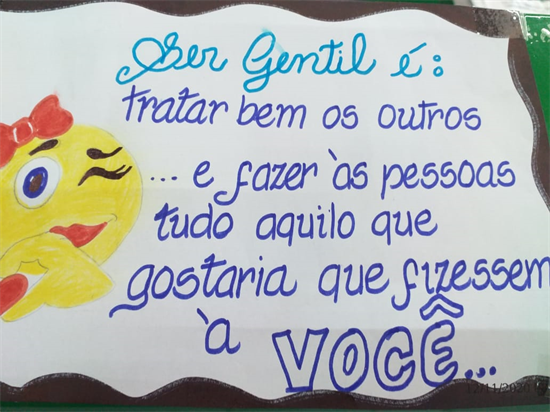 Ser Gentil é:
tratar bem os outros
... e fazer às pessoas
tudo aquilo que
gostaria que fizessem
à VOCÊ...